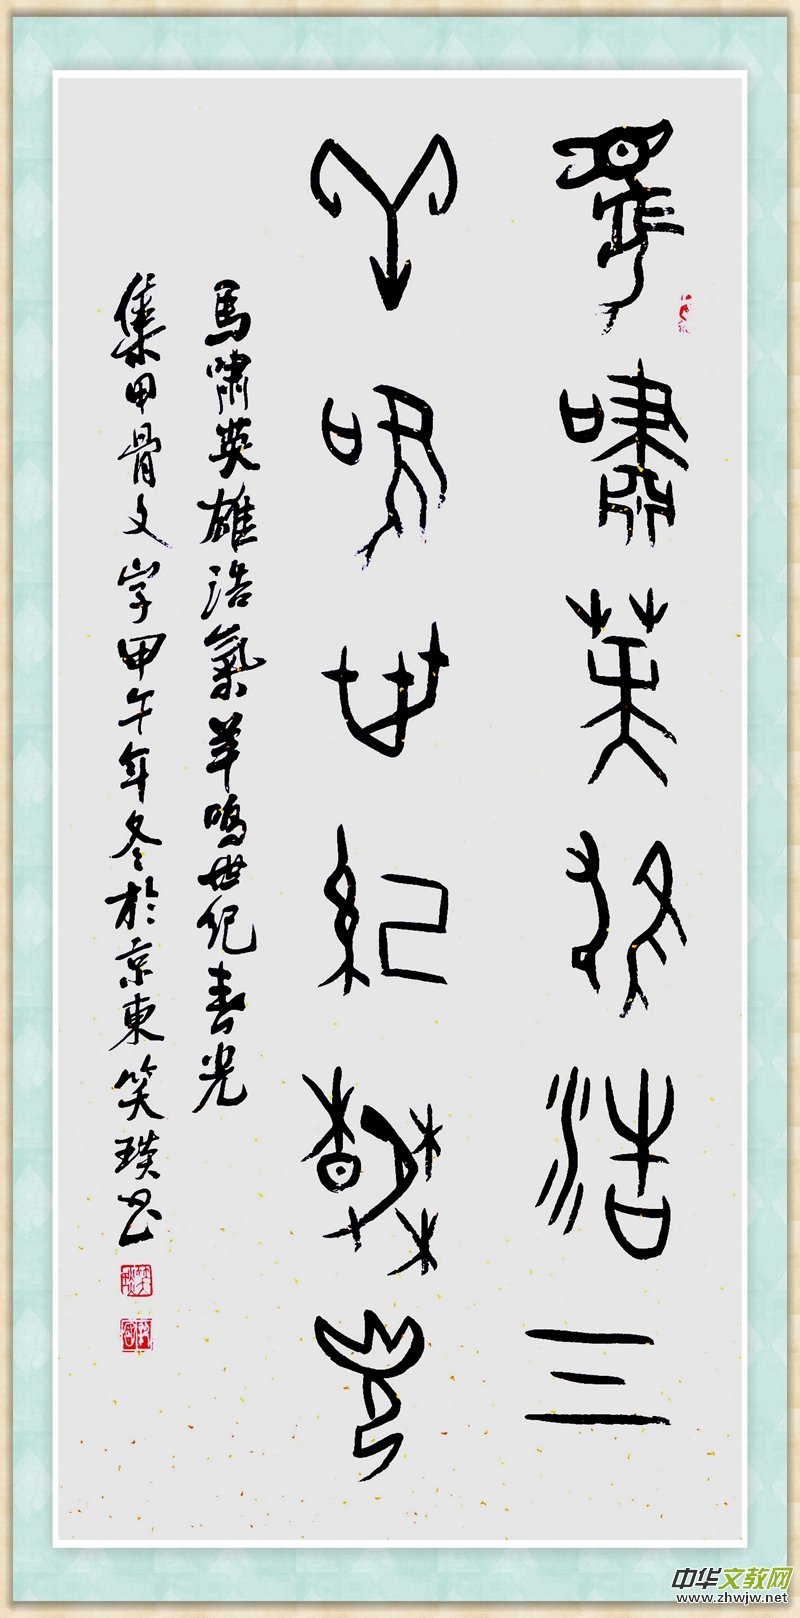 馬嘯英雄浩氣
羊鳴世紀春光
馬嘯英雄浩氣羊鳴世紀春光
集甲骨文字甲午年冬於京東笑琰书
中华文教网
www.zhwjw.net